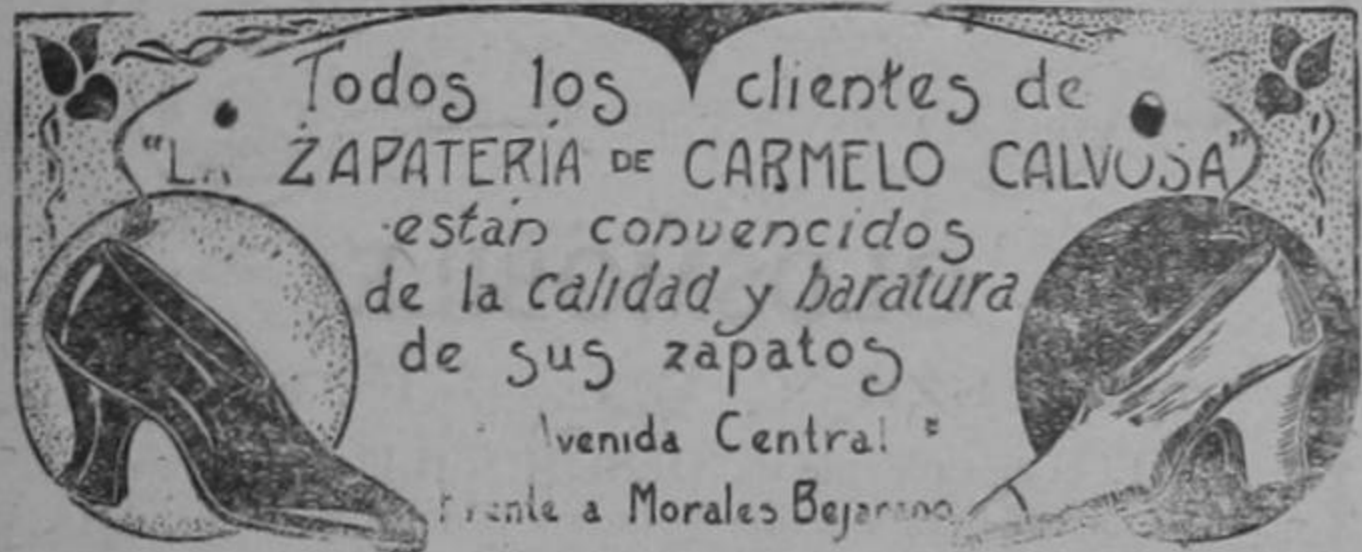 Todos los clientes de
"LA ZAPATERÍA DE CARMELO CALVOSA"
están convencidos
de la calidad y baratura
de sus zapatos
Avenida Central
Frente a Morales Bejarano